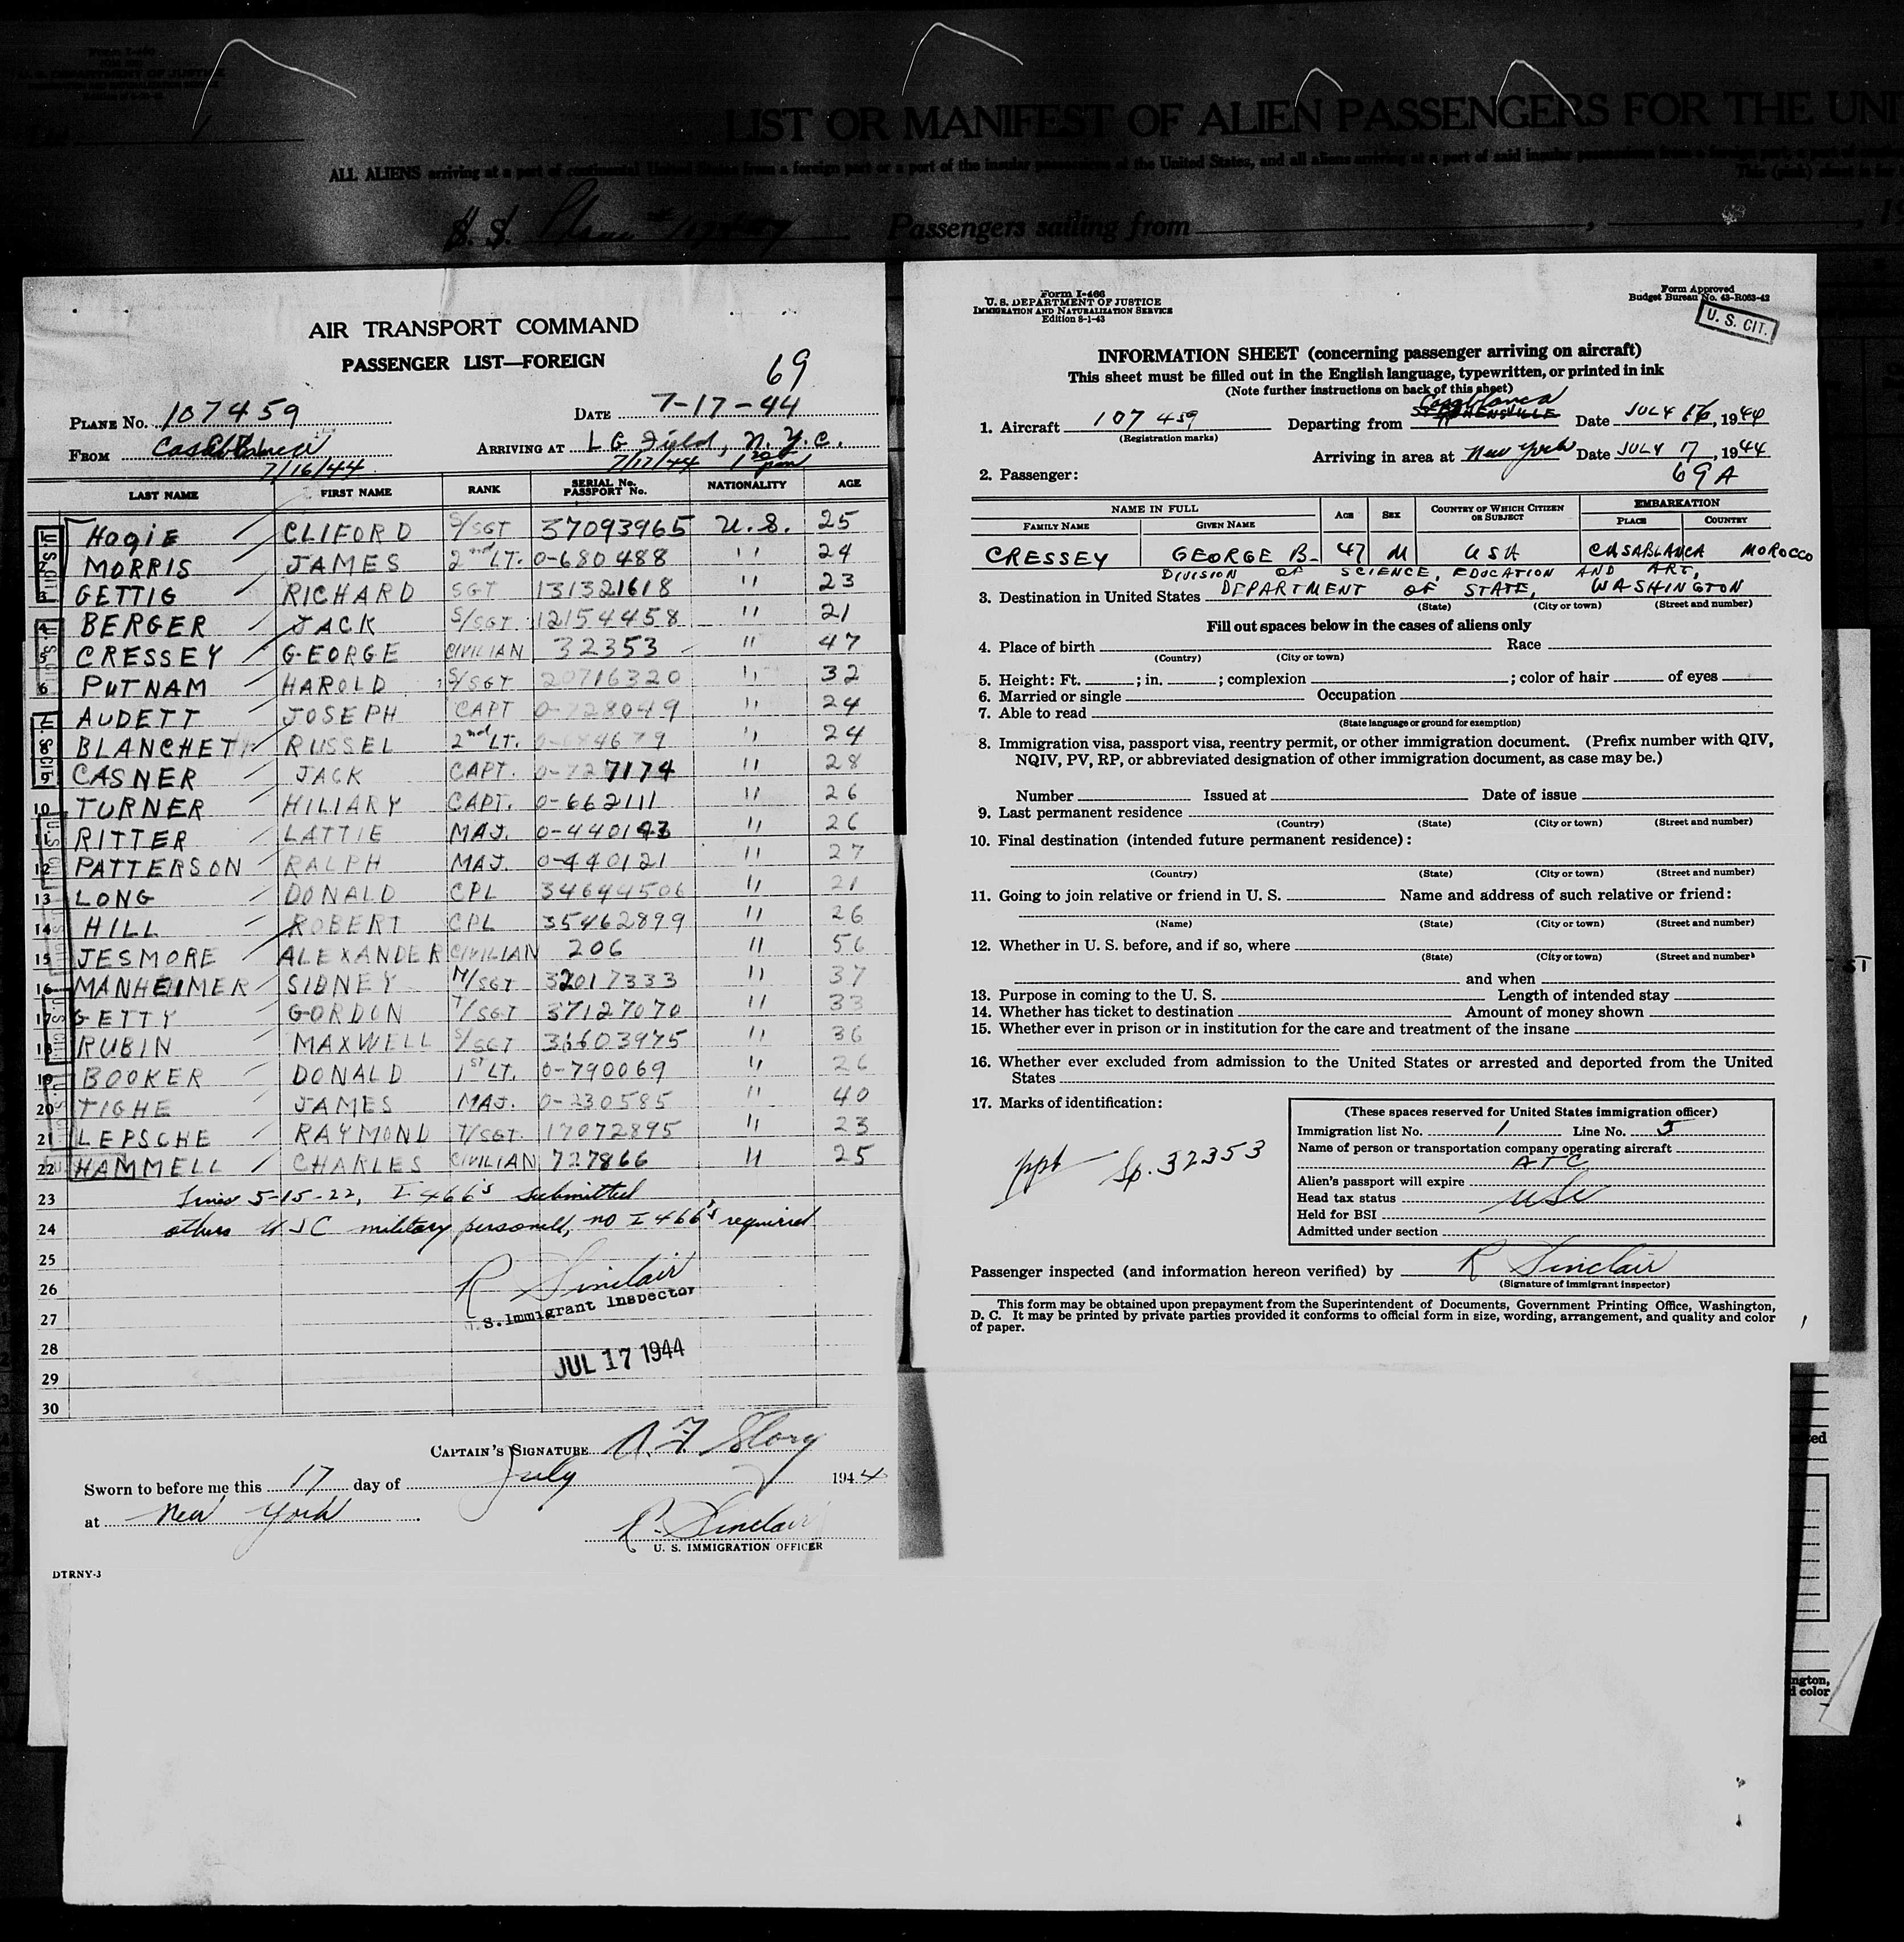 LIST OR MANIFEST OF ALIEN PASSENGERS FOR THE UNI
ALL ALIENS arriving at a port of continental United States from a foreign port or a port of the insular possessions of the United States, and all aliens arriving at a port of said insular possessions from a foreign port, a port of
S. S. Passengers sailing from
AIR TRANSPORT COMMAND
PASSENGER LIST—FOREIGN
69
PLANE No. 107459 DATE 7-17-44
FROM Casablanca ARRIVING AT L G Field, N.Y.C.
7/16/44 7/17/44
LAST NAME FIRST NAME RANK SERIAL No. PASSPORT No. NATIONALITY AGE
HOGIE CLIFORD S/SGT 37093965 U.S. 25
MORRIS JAMES 2nd LT. 0-680488 " 24
GETTIG RICHARD SGT 131321618 " 23
BERGER JACK S/SGT 12154458 " 21
CRESSEY GEORGE CIVILIAN 32353 " 47
6 PUTNAM HAROLD S/SGT 20716320 " 32
AUDETT JOSEPH CAPT 0-728049 " 24
BLANCHETT RUSSEL 2nd LT. " 24
CASNER JACK CAPT. 0-727174 " 28
10 TURNER HILIARY CAPT. 0-662111 " 26
RITTER LATTIE MAJ. 0-440193 " 26
12 PATTERSON RALPH MAJ. 0-440121 " 27
13 LONG DONALD CPL 34644506 " 21
14 HILL ROBERT CPL 35462899 " 26
15 JESMORE ALEXANDER CIVILIAN 206 " 56
16 MANHEIMER SIDNEY M/SGT 32017333 " 37
17 GETTY GORDON T/SGT 37127070 " 33
18 RUBIN MAXWELL S/SGT 36603975 " 36
19 BOOKER DONALD 1st LT. 0-790069 " 26
20 TIGHE JAMES MAJ. 0-230585 " 40
21 LEPSCHE RAYMOND T/SGT. 17072895 " 23
22 HAMMELL CHARLES CIVILIAN 727866 " 25
23 Lines 5-15-22, I 466's submitted
24 others USC military personell, no I 466's required
25
26 R Sinclair
27 U.S. Immigrant Inspector
28 JUL 17 1944
29
30
CAPTAIN'S SIGNATURE
Sworn to before me this 17 day of July 1944
at New York
R. Sinclair
U. S. IMMIGRATION OFFICER
DTRNY-3
Form I-466
U. S. DEPARTMENT OF JUSTICE
IMMIGRATION AND NATURALIZATION SERVICE
Edition 8-1-43
Form Approved
Budget Bureau No. 43-R063-42
U. S. CIT.
INFORMATION SHEET (concerning passenger arriving on aircraft)
This sheet must be filled out in the English language, typewritten, or printed in ink
(Note further instructions on back of this sheet)
Casablanca
1. Aircraft 107 459 Departing from STEPHENSVILLE Date JULY 16, 1944
(Registration marks)
Arriving in area at New York Date JULY 17, 1944
2. Passenger: 69 A
NAME IN FULL AGE SEX COUNTRY OF WHICH CITIZEN OR SUBJECT EMBARKATION
FAMILY NAME GIVEN NAME PLACE COUNTRY
CRESSEY GEORGE B. 47 M USA CASABLANCA MOROCCO
DIVISION OF SCIENCE, EDUCATION AND ART,
3. Destination in United States DEPARTMENT OF STATE, WASHINGTON
(State) (City or town) (Street and number)
Fill out spaces below in the cases of aliens only
4. Place of birth Race
(Country) (City or town)
5. Height: Ft. ; in. ; complexion ; color of hair of eyes
6. Married or single Occupation
7. Able to read
(State language or ground for exemption)
8. Immigration visa, passport visa, reentry permit, or other immigration document. (Prefix number with QIV,
NQIV, PV, RP, or abbreviated designation of other immigration document, as case may be.)
Number Issued at Date of issue
9. Last permanent residence
(Country) (State) (City or town) (Street and number)
10. Final destination (intended future permanent residence):
(Country) (State) (City or town) (Street and number)
11. Going to join relative or friend in U. S. Name and address of such relative or friend:
(Name) (State) (City or town) (Street and number)
12. Whether in U. S. before, and if so, where
(State) (City or town) (Street and number)
and when
13. Purpose in coming to the U. S. Length of intended stay
14. Whether has ticket to destination Amount of money shown
15. Whether ever in prison or in institution for the care and treatment of the insane
16. Whether ever excluded from admission to the United States or arrested and deported from the United
States
17. Marks of identification:
ppt Sp. 32353
(These spaces reserved for United States immigration officer)
Immigration list No. 1 Line No. 5
Name of person or transportation company operating aircraft
ATC
Alien's passport will expire
Head tax status USC
Held for BSI
Admitted under section
Passenger inspected (and information hereon verified) by R Sinclair
(Signature of immigrant inspector)
This form may be obtained upon prepayment from the Superintendent of Documents, Government Printing Office, Washington,
D. C. It may be printed by private parties provided it conforms to official form in size, wording, arrangement, and quality and color
of paper.
ngton,
d color